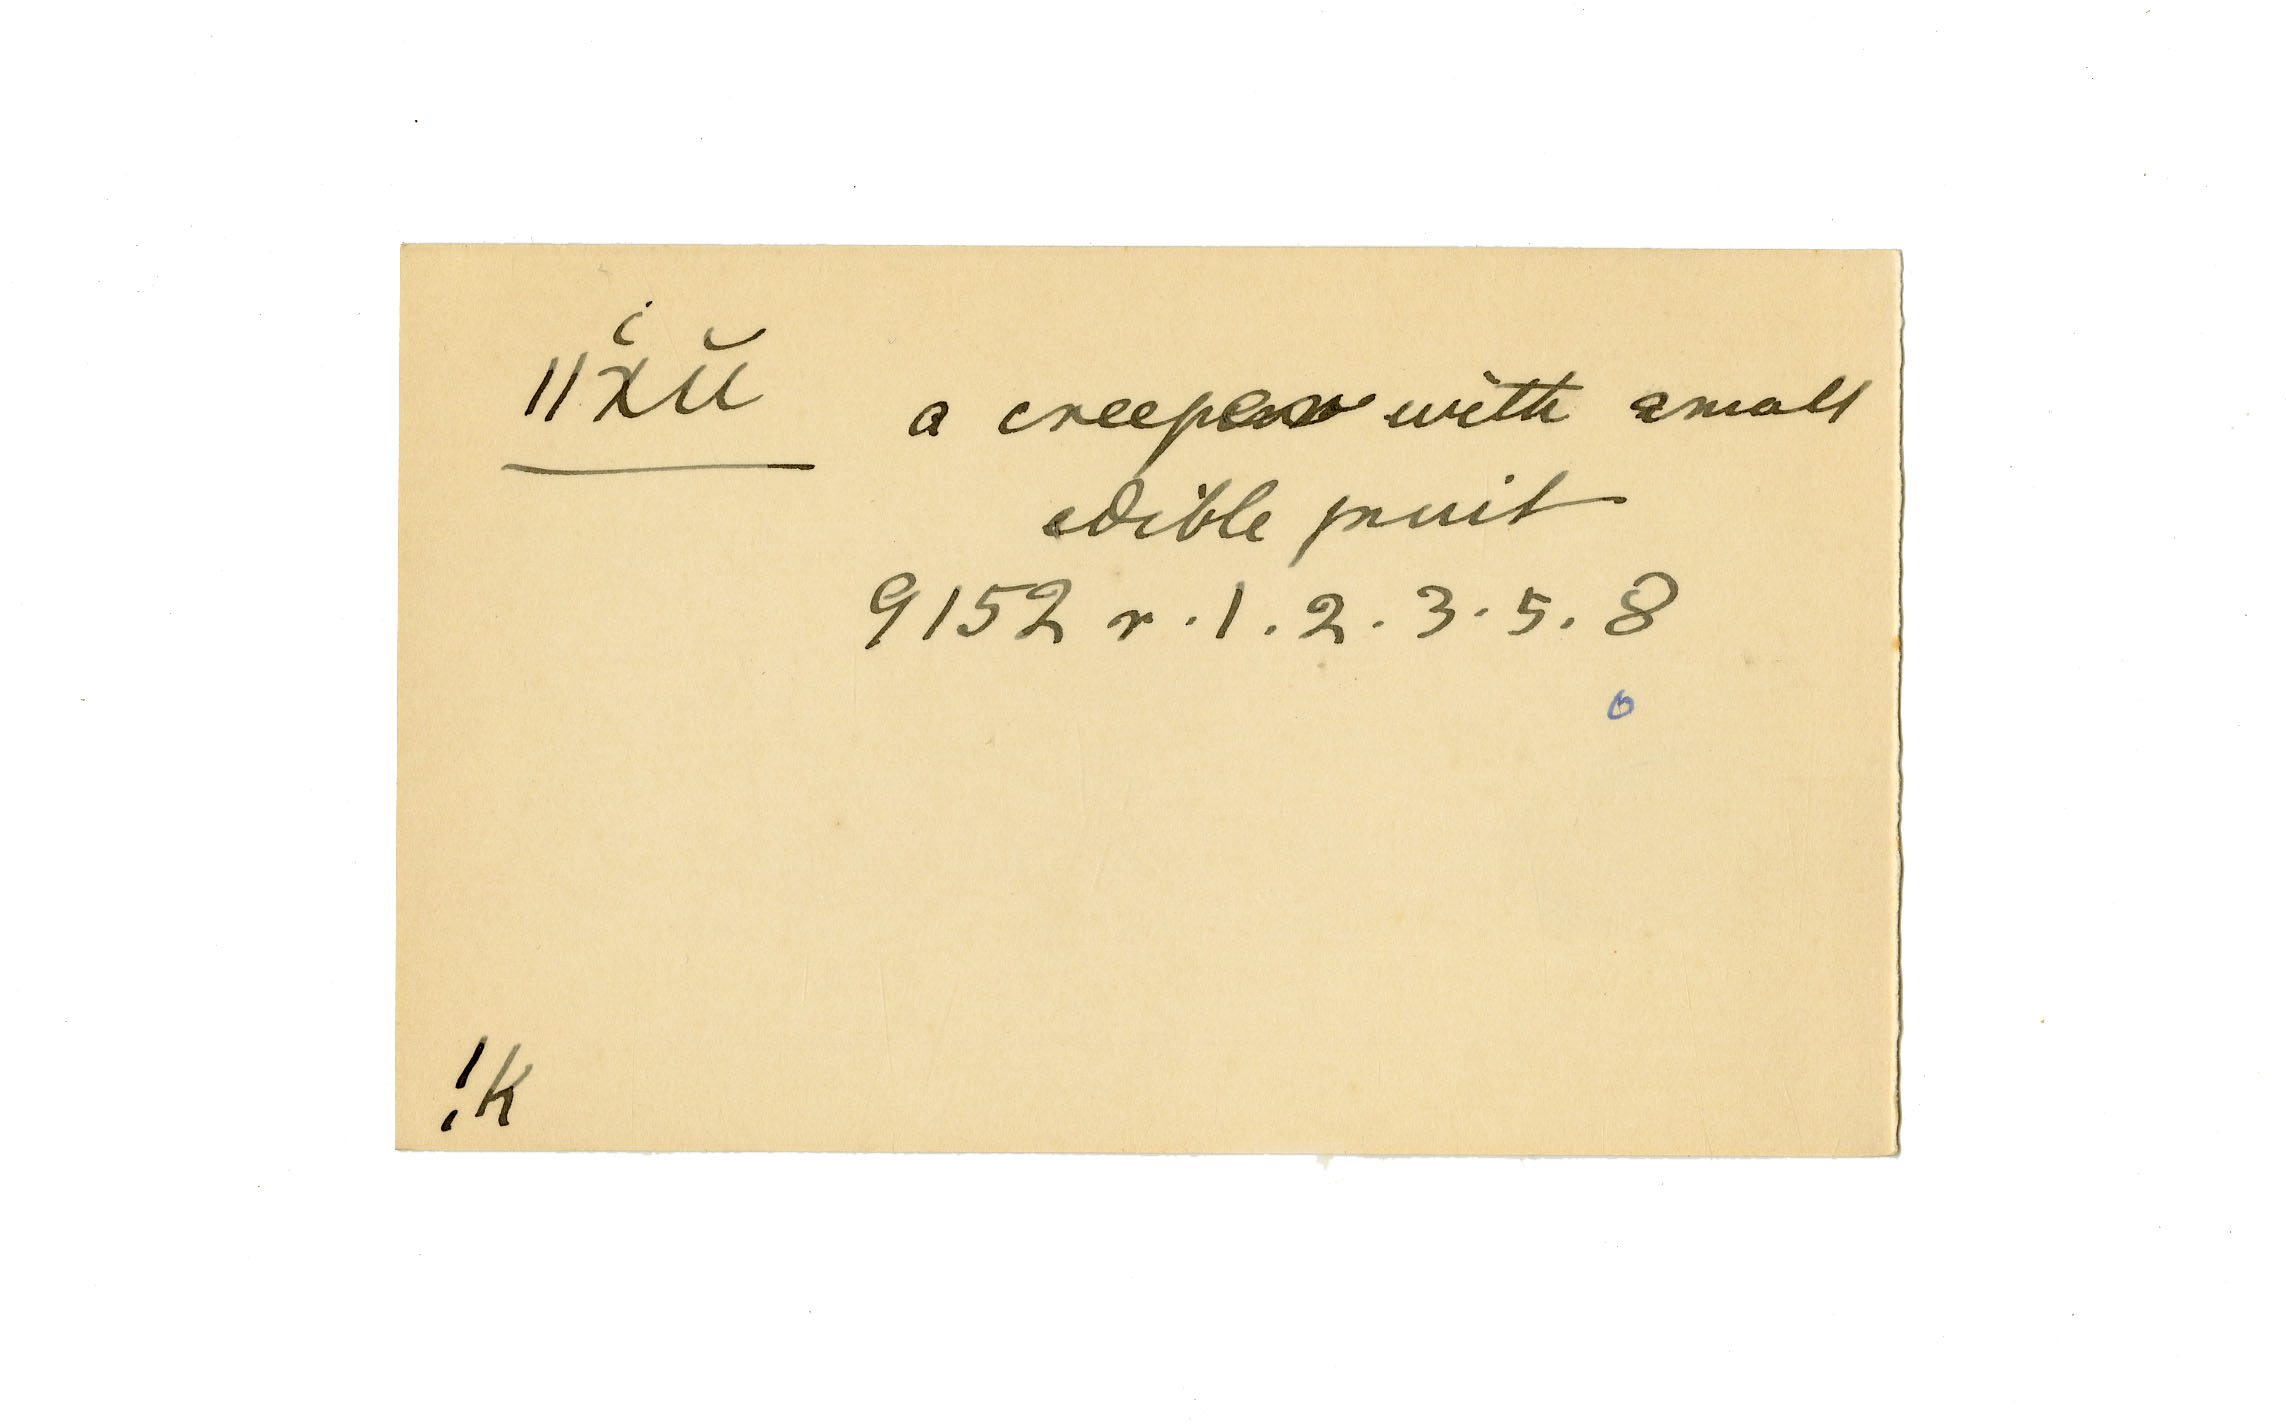 ǁx̔ŭ a creeper with small
edible fruit
9152 r. 1. 2. 3. 5. 8
6
!k